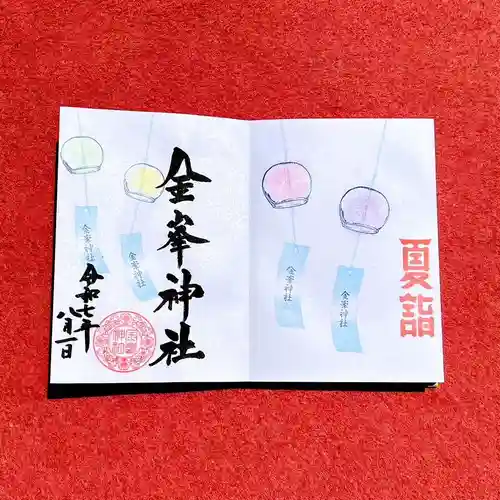 夏詣
金峯神社
金峯神社
金峯神社
金峯神社
金峯神社
令和七年
八月一日